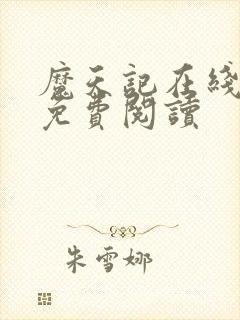 魔天記在綫
免費閱讀
朱雪娜